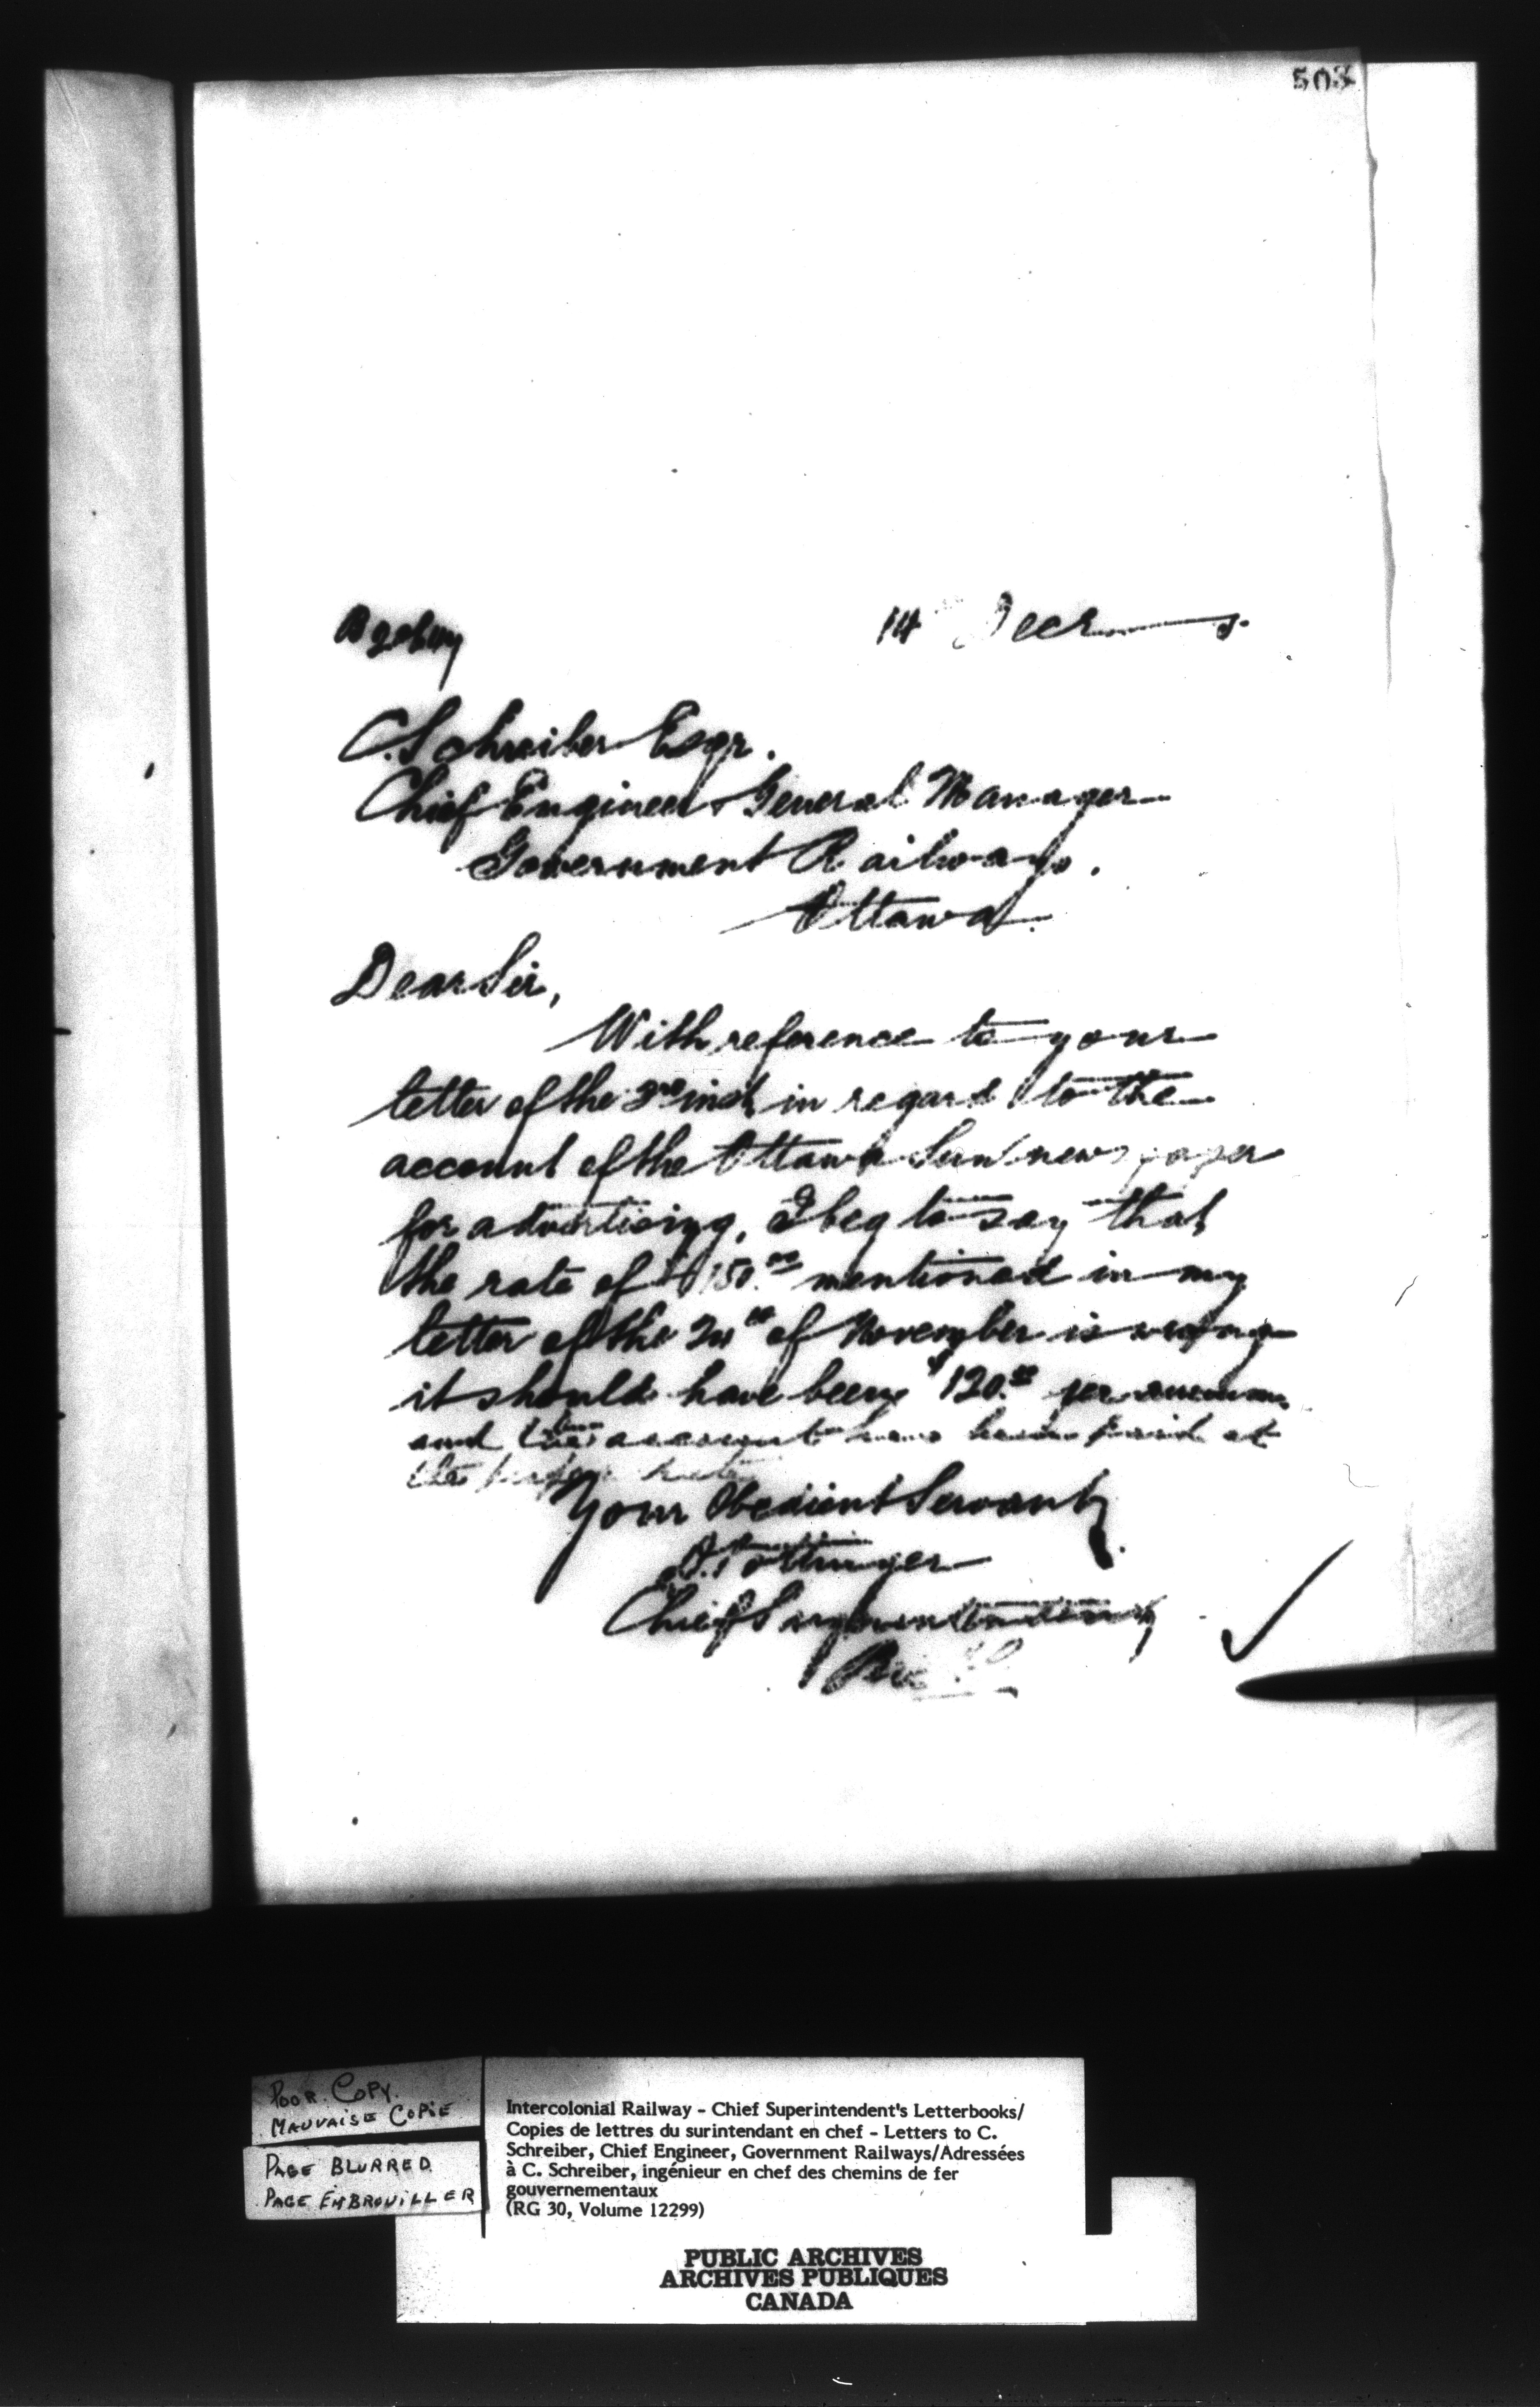 503
14 Decr 5.
C. Schreiber Esqr.
Chief Engineer & General Manager
Government Railways.
Ottawa.
Dear Sir,
With reference to your
letter of the 3rd inst, in regard to the
account of the Ottawa Sun newspaper
for advertising, I beg to say that
the rate of $150.00 mentioned in my
letter of the 24th of November is wrong
it should have been $120.00 per annum
and the account has been paid at
the rate
Your Obedient Servant,
D. Pottinger
Chief Superintendent,
Per
POOR COPY.
MAUVAISE COPIE
PAGE BLURRED
PAGE EMBROUILLER
Intercolonial Railway - Chief Superintendent's Letterbooks/
Copies de lettres du surintendant en chef - Letters to C.
Schreiber, Chief Engineer, Government Railways/Adressées
à C. Schreiber, ingénieur en chef des chemins de fer
gouvernementaux
(RG 30, Volume 12299)
PUBLIC ARCHIVES
ARCHIVES PUBLIQUES
CANADA